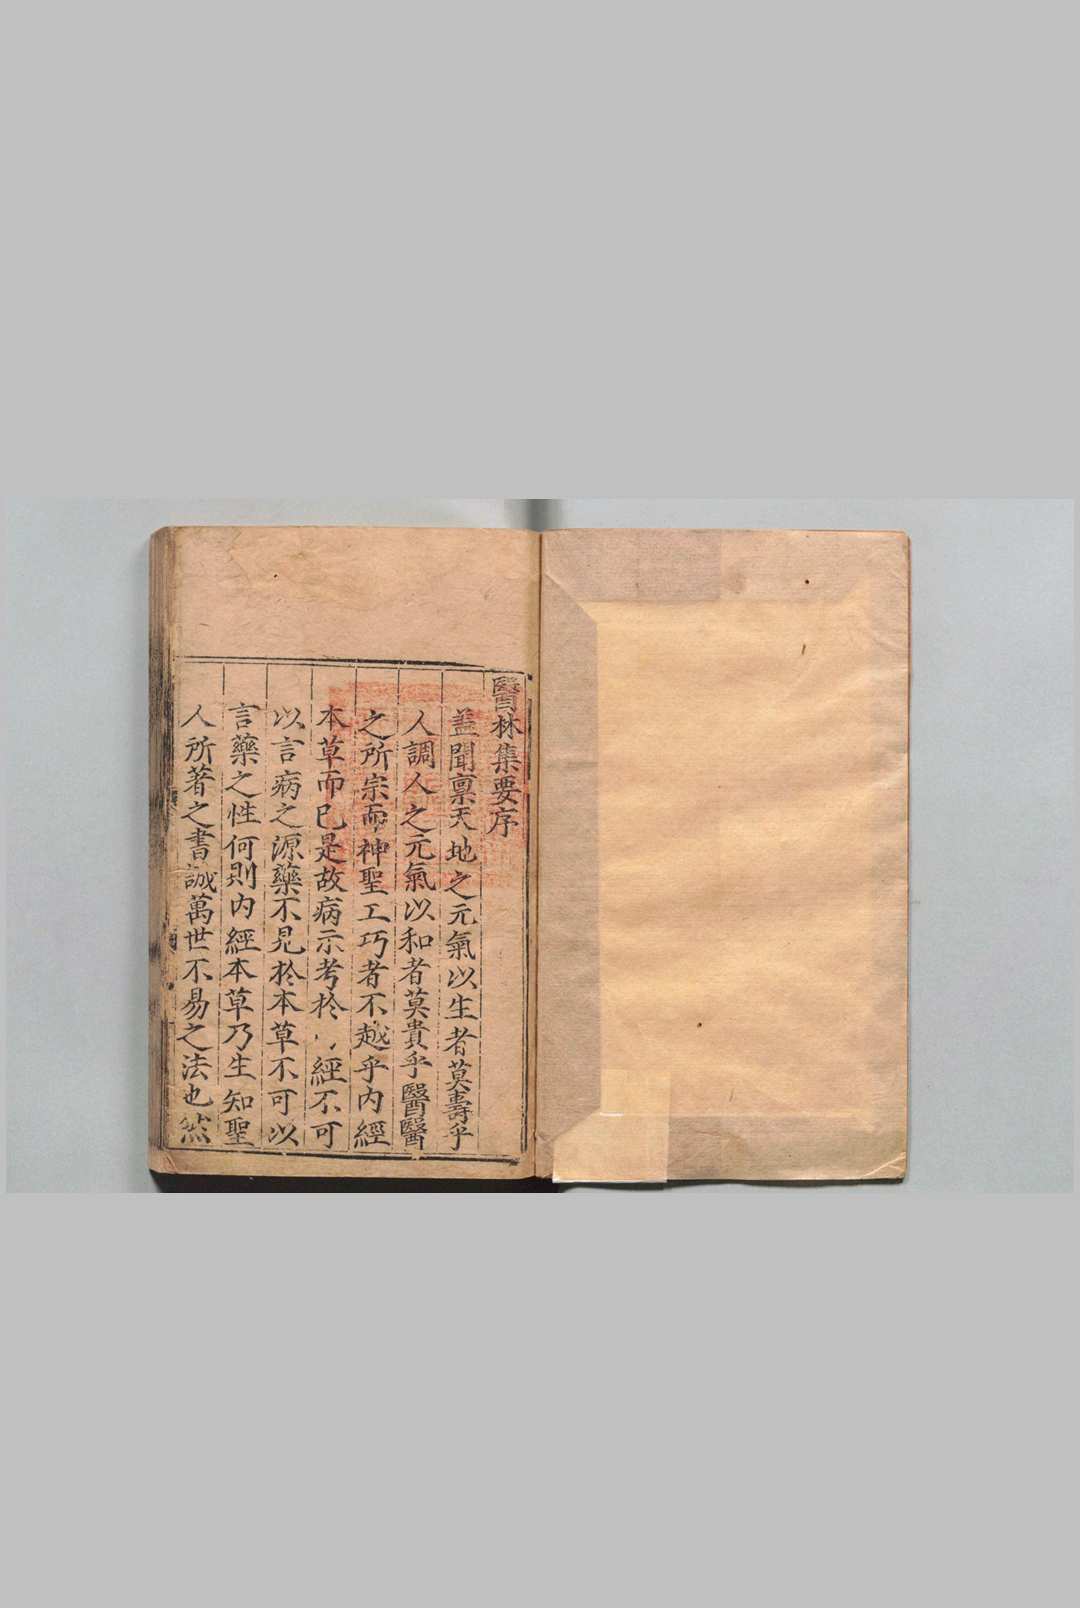 醫林集要序
蓋聞禀天地之元氣以生者莫壽乎
人調人之元氣以和者莫貴乎醫醫
之所宗而神聖工巧者不越乎內經
本草而已是故病示考於經不可
以言病之源藥不見於本草不可以
言藥之性何則內經本草乃生知聖
人所著之書誠萬世不易之法也然